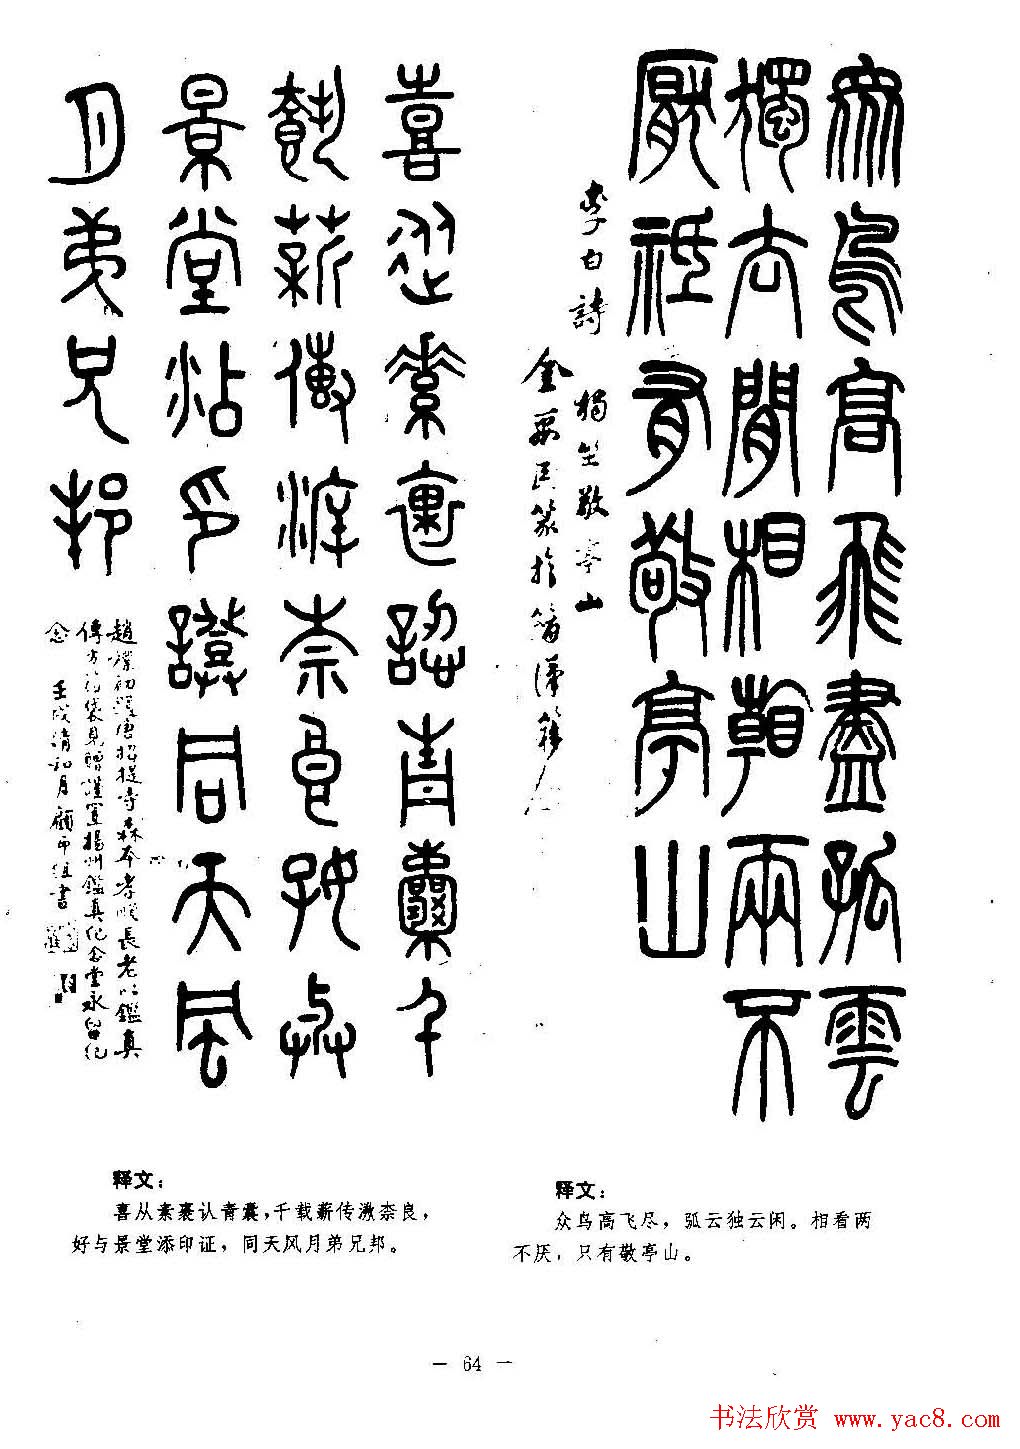 眾鳥高飛盡孤雲
獨去閒相看兩不
厭祗有敬亭山
李白詩 獨坐敬亭山
喜從素裹認青囊千
載薪傳 柰良好與
景堂添印證同天風
月弟兄邦
趙樸初題唐招提寺森本孝順長老以鑑真
傳方藥袋見贈謹寘揚州鑑真紀念堂永留紀
念 壬戌清和月顧 書
释文：
喜从素裹认青囊，千载薪传 柰良，
好与景堂添印证，同天风月弟兄邦。
释文：
众鸟高飞尽，孤云独云闲。相看两
不厌，只有敬亭山。
— 64 —
书法欣赏 www.yac8.com